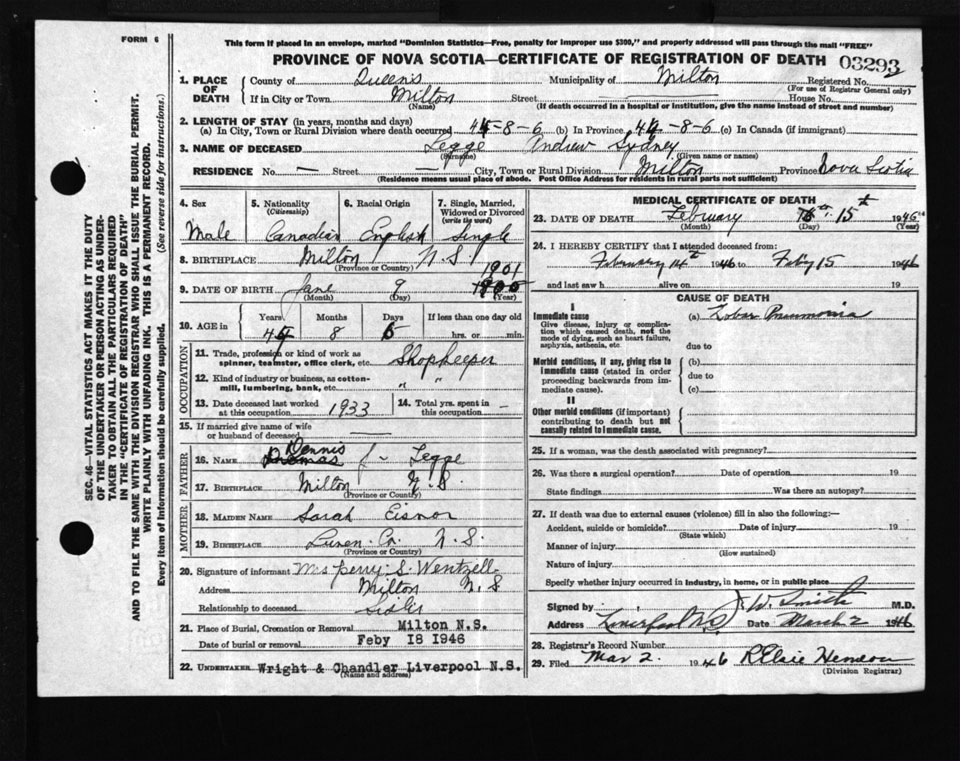 FORM 6
This form if placed in an envelope, marked "Dominion Statistics—Free, penalty for improper use $300," and properly addressed will pass through the mail "FREE"
PROVINCE OF NOVA SCOTIA—CERTIFICATE OF REGISTRATION OF DEATH 03293
1. PLACE OF DEATH
County of Queens Municipality of Milton Registered No.
(For use of Registrar General only)
If in City or Town Milton Street House No.
(Name) (If death occurred in a hospital or institution, give the name instead of street and number)
2. LENGTH OF STAY (in years, months and days)
(a) In City, Town or Rural Division where death occurred 44-8-6 (b) In Province 44-8-6 (c) In Canada (if immigrant)
3. NAME OF DECEASED Legge Andrew Sydney
(Surname) (Given name or names)
RESIDENCE No. — Street — City, Town or Rural Division Milton Province Nova Scotia
(Residence means usual place of abode. Post Office Address for residents in rural parts not sufficient)
SEC. 46—VITAL STATISTICS ACT MAKES IT THE DUTY
OF THE UNDERTAKER OR PERSON ACTING AS UNDER-
TAKER TO OBTAIN ALL THE PARTICULARS REQUIRED
IN THE "CERTIFICATE OF REGISTRATION OF DEATH"
AND TO FILE THE SAME WITH THE DIVISION REGISTRAR WHO SHALL ISSUE THE BURIAL PERMIT.
WRITE PLAINLY WITH UNFADING INK. THIS IS A PERMANENT RECORD.
Every item of information should be carefully supplied. (See reverse side for instructions.)
4. Sex
Male
5. Nationality
(Citizenship)
Canadian
6. Racial Origin
English
7. Single, Married,
Widowed or Divorced
(write the word)
Single
8. BIRTHPLACE Milton N.S.
(Province or Country)
1901
9. DATE OF BIRTH June 9
(Month) (Day) (Year)
10. AGE in
Years Months Days If less than one day old
44 8 6 hrs. or min.
OCCUPATION
11. Trade, profession or kind of work as
spinner, teamster, office clerk, etc. Shopkeeper
12. Kind of industry or business, as cotton-
mill, lumbering, bank, etc. " "
13. Date deceased last worked
at this occupation 1933
14. Total yrs. spent in
this occupation —
15. If married give name of wife
or husband of deceased —
FATHER
Dennis
16. NAME Thomas J. Legge
17. BIRTHPLACE Milton N.S.
(Province or Country)
MOTHER
18. MAIDEN NAME Sarah Eisnor
19. BIRTHPLACE Lunen. Co. N.S.
(Province or Country)
20. Signature of informant Mrs Perry S. Wentzell
Address Milton N.S
Relationship to deceased Sister
21. Place of Burial, Cremation or Removal Milton N.S.
Date of burial or removal Feby 18 1946
22. UNDERTAKER Wright & Chandler Liverpool N.S.
(Name and address)
MEDICAL CERTIFICATE OF DEATH
23. DATE OF DEATH February 15th 1946
(Month) (Day) (Year)
24. I HEREBY CERTIFY that I attended deceased from:
February 14th 1946 to Feby 15 1946
and last saw h alive on 19
CAUSE OF DEATH
I
Immediate cause
Give disease, injury or complica-
tion which caused death, not the
mode of dying, such as heart failure,
asphyxia, asthenia, etc.
(a) Lobar Pneumonia
due to
Morbid conditions, if any, giving rise to
immediate cause (stated in order
proceeding backwards from im-
mediate cause).
(b)
due to
(c)
II
Other morbid conditions (if important)
contributing to death but not
causally related to immediate cause.
25. If a woman, was the death associated with pregnancy?
26. Was there a surgical operation? Date of operation 19
State findings Was there an autopsy?
27. If death was due to external causes (violence) fill in also the following:—
Accident, suicide or homicide? Date of injury 19
(State which)
Manner of injury
(How sustained)
Nature of injury
Specify whether injury occurred in industry, in home, or in public place
Signed by J. W. Smith M.D.
Address Liverpool N.S Date March 2 1946
28. Registrar's Record Number
29. Filed Mar 2. 1946 R Elsie
(Division Registrar)